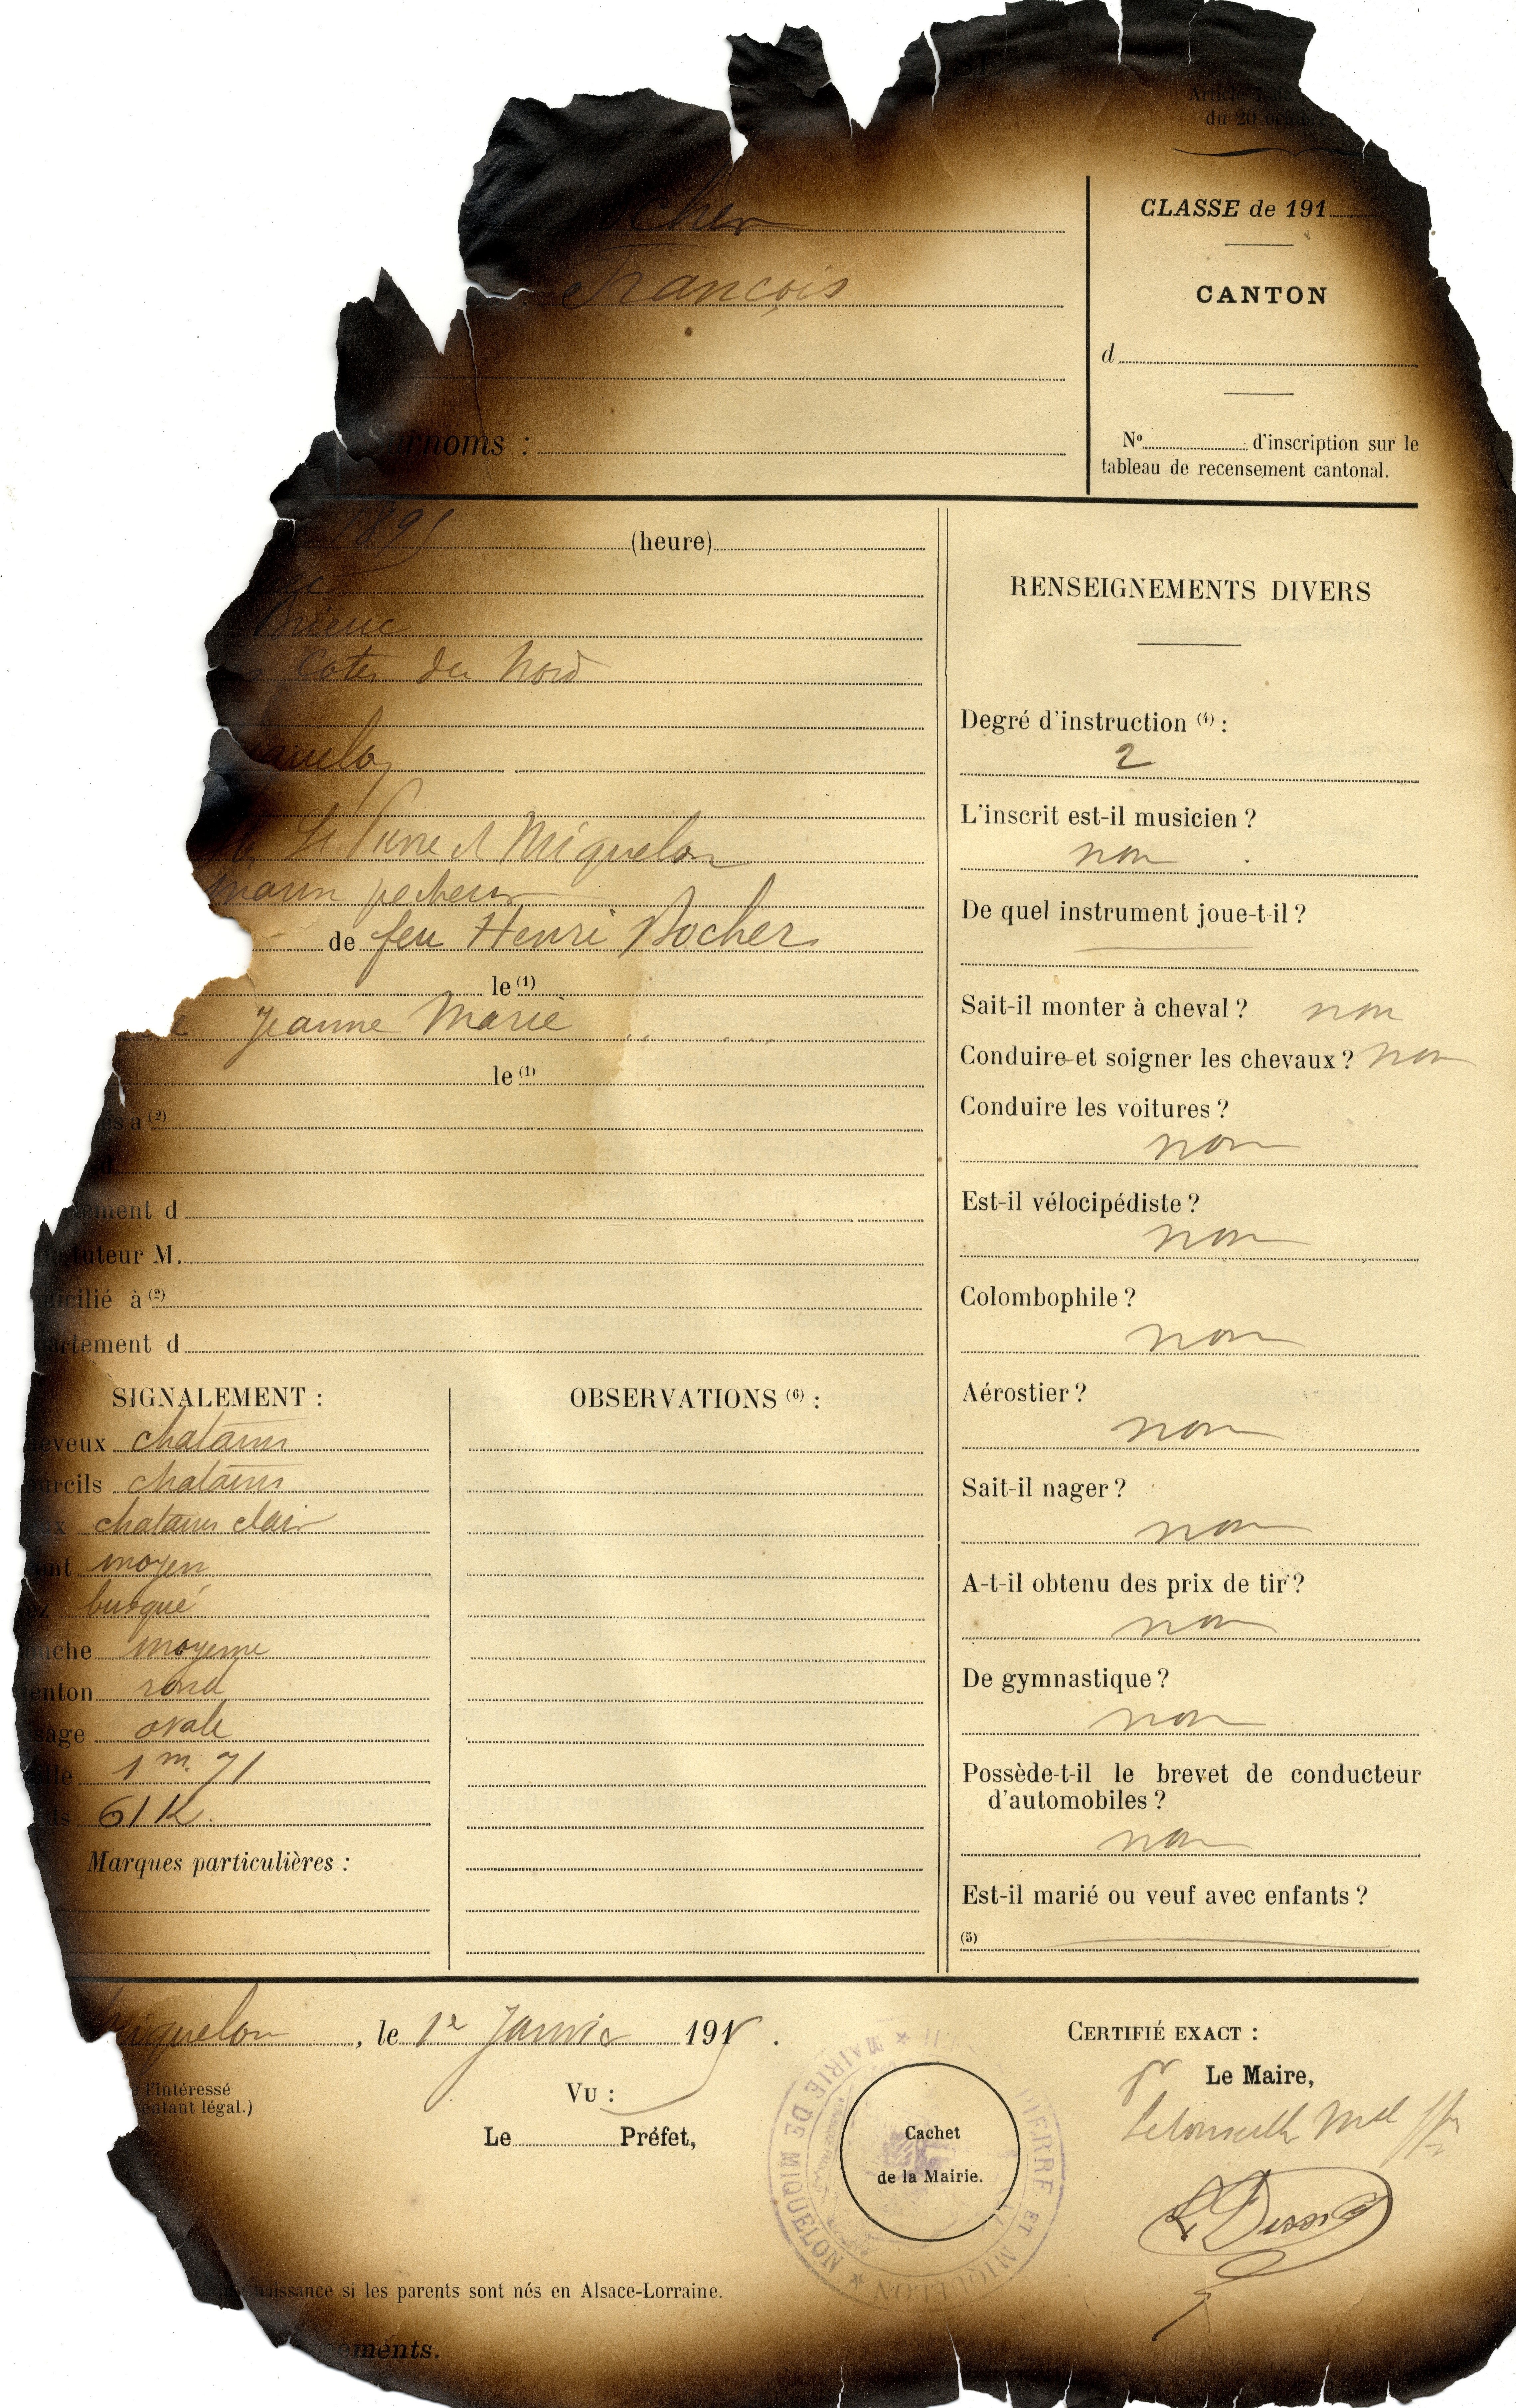 SE
Article
du 20 oct
ocher
François
Surnoms :
CLASSE de 191
CANTON
d
No d'inscription sur le
tableau de recensement cantonal.
(heure)
Brieuc
Cotes du Nord
quelon
St Pierre et Miquelon
marin pecheur
de feu Henri Rocher
le (1)
Jeanne Marie
le (1)
és à (2)
d
tement d
tuteur M.
icilié à (2)
artement d
SIGNALEMENT :
eveux chatains
urcils chatains
ux chatains clair
ont moyen
ez busqué
ouche moyenne
enton rond
sage ovale
ille 1 m. 71
ds 61 K.
Marques particulières :
OBSERVATIONS (6) :
RENSEIGNEMENTS DIVERS
Degré d'instruction (4) :
2
L'inscrit est-il musicien ?
non
De quel instrument joue-t-il ?
Sait-il monter à cheval ? non
Conduire et soigner les chevaux ? non
Conduire les voitures ?
non
Est-il vélocipédiste ?
non
Colombophile ?
non
Aérostier ?
non
Sait-il nager ?
non
A-t-il obtenu des prix de tir ?
non
De gymnastique ?
non
Possède-t-il le brevet de conducteur
d'automobiles ?
non
Est-il marié ou veuf avec enfants ?
(5)
Miquelon, le 1er Janvier 191
l'intéressé
sentant légal.)
Vu :
Le Préfet,
MAIRIE DE MIQUELON
PIERRE ET MIQUELON
Cachet
de la Mairie.
CERTIFIÉ EXACT :
Le Maire,
naissance si les parents sont nés en Alsace-Lorraine.
ements.